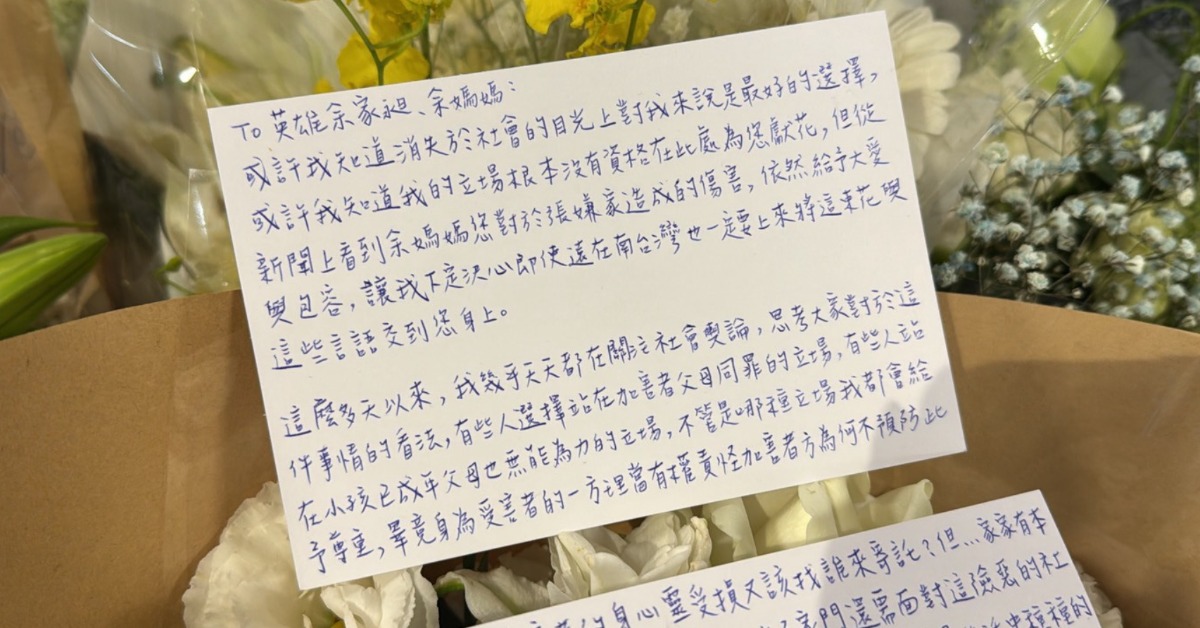 To 英雄余家昶、余媽媽:
或許我知道消失於社會的目光上對我來說是最好的選擇,
或許我知道我的立場根本沒有資格在此處為您獻花,但從
新聞上看到余媽媽您對於張嫌家造成的傷害,依然給予大愛
與包容,讓我下定決心即使遠在南台灣也一定要上來將這束花與
這些言語交到您身上。
這麼多天以來,我幾乎天天都在關注社會輿論,思考大家對於這
件事情的看法,有些人選擇站在加害者父母同罪的立場,有些人站
在小孩已成年父母也無能為力的立場,不管是哪種立場我都會給
予尊重,畢竟身為受害者的一方理當有權責怪加害者方為何不預防此
身心靈受損又該找誰來寄託?但...家家有本
門還需面對這險惡的社
種種的